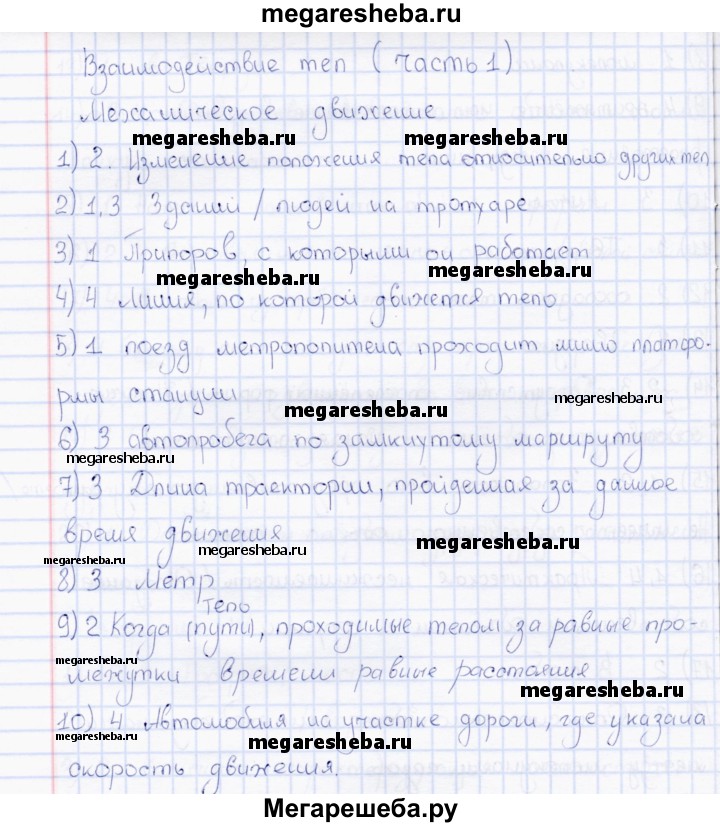 megaresheba.ru
Взаимодействие тел (часть 1)
Механическое движение
megaresheba.ru megaresheba.ru
1) 2. Изменение положения тела относительно других тел
2) 1,3 Зданий / людей на тротуаре
3) 1 Припоров, с которыми он работает
megaresheba.ru megaresheba.ru
4) 4 Линия, по которой движется тело
5) 1 поезд метрополитена проходит мимо платфо-
рмы станции
megaresheba.ru megaresheba.ru
6) 3 автопробега по замкнутому маршруту
megaresheba.ru
7) 3 Длина траектории, пройденная за данное
время движения
megaresheba.ru megaresheba.ru
megaresheba.ru
8) 3 Метр
тело
9) 2 Когда (пути), проходимые телом за равные про-
megaresheba.ru
межутки времени равные расстояния
megaresheba.ru
10) 4 Автомобиля на участке дороги, где указана
megaresheba.ru megaresheba.ru
скорость движения.
Мегарешеба.ру